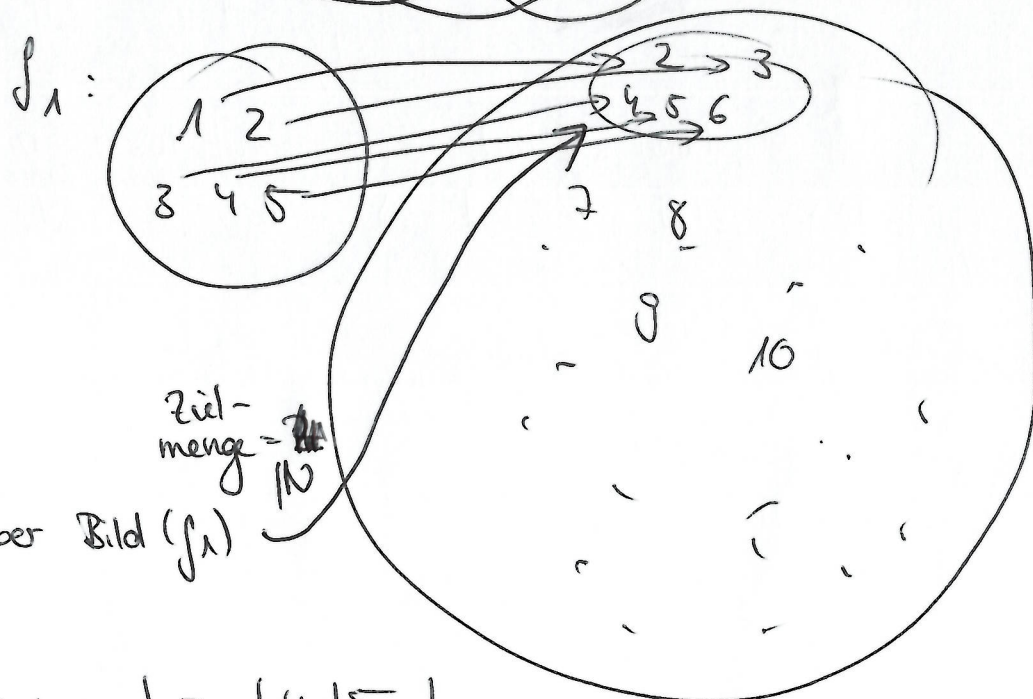 f₁ :
1 2
3 4 5
2 3
4 5 6
7 8
9
10
Ziel-
menge =
ℕ
Bild (f₁)